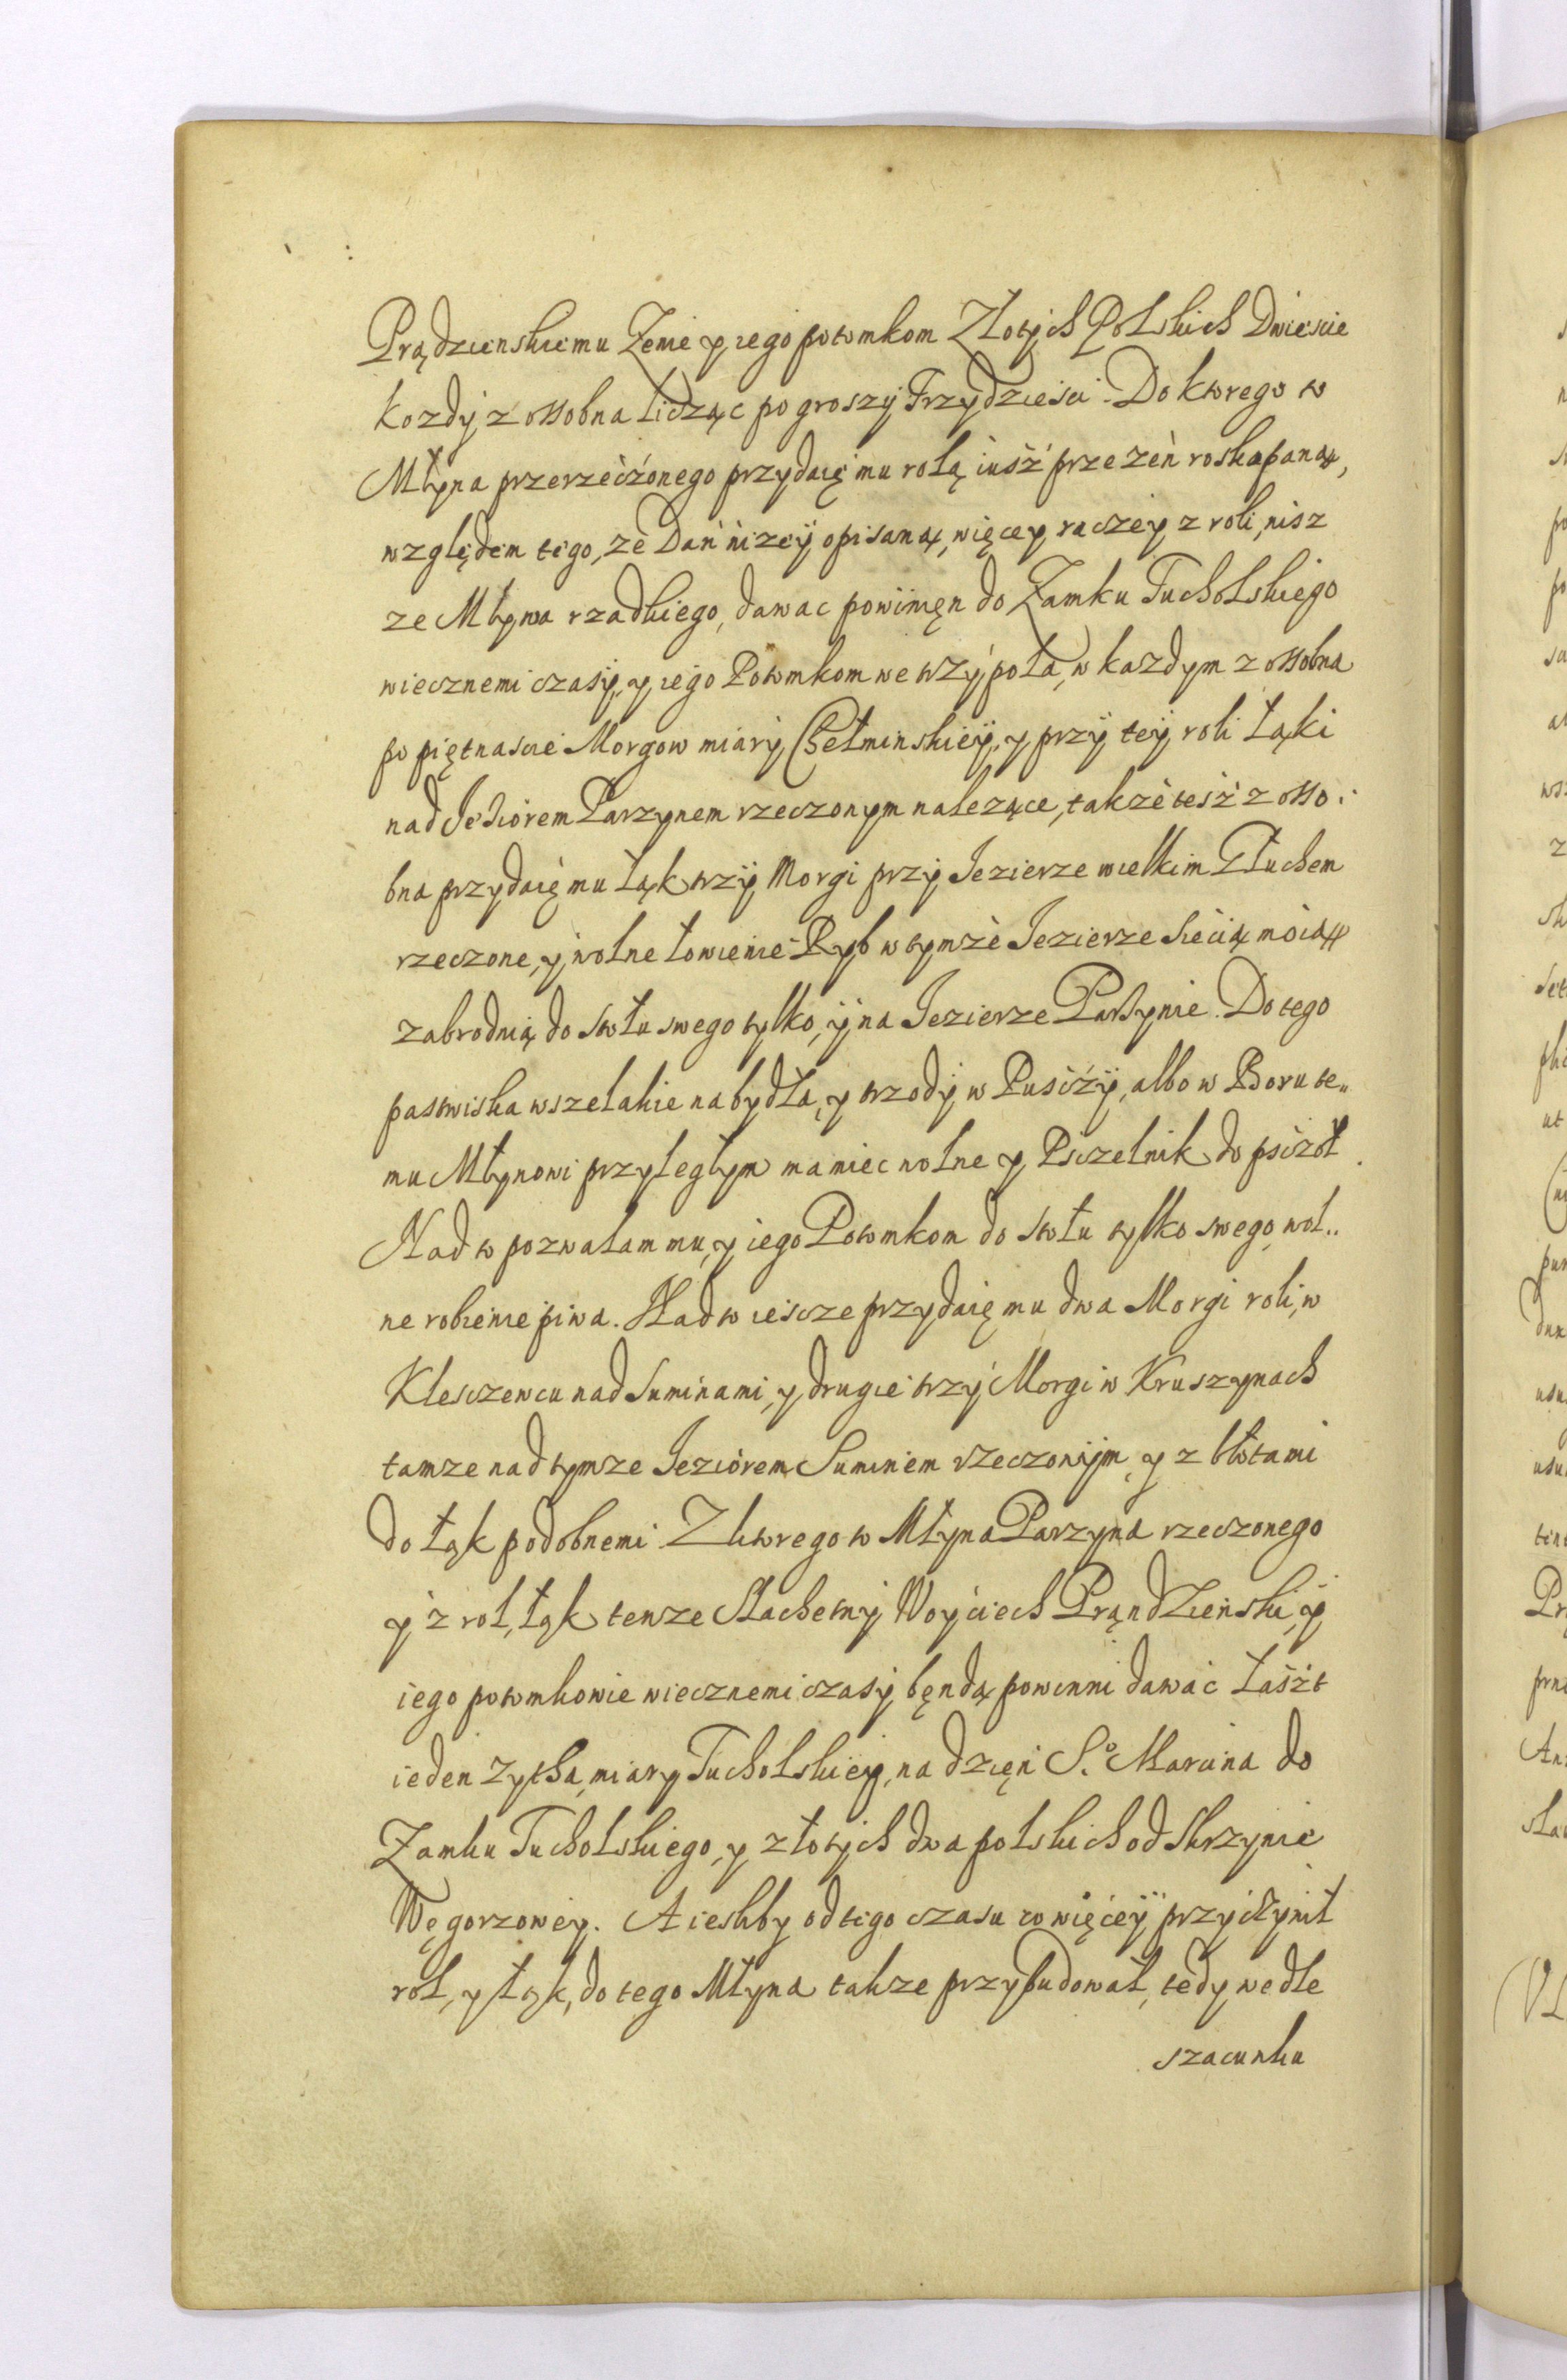 Prądzienskiemu Zenie y iego potomkom Złotych Polskich Dwiescie
kozdy z ossobna licżąc po groszy Trzydziesci. Do ktorego to
Młyna przerzeczonego przydaię mu rolą iusz przezeń roskopaną,
względem tego, ze Dań nizey opisaną, więcey raczey z roli, nisz
ze Młyna rzadkiego, dawac powinięn do Zamku Tucholskiego
wiecznemi czasy, y iego Potomkom we trzy pola, w kazdym z ossobna
po piętnascie Morgow miary Chełminskiey, y przy tey roli łąki
nad Jeziorem Parzynem rzeczonym nalezące, takze tesz z osso:
bna przydaię mu łąk trzy Morgi przy Jezierze wielkim Głuchem
rzeczone, y wolne łowienie Ryb w tymze Jezierze siecią mocią
zabrodnią do stołu swego tylko, y na Jezierze Parzynie. Do tego
pastwiska wszelakie na bydła, y trzody w Puszczy, albo w Boru te„
mu Młynowi przyległym ma miec wolne y Psczelnik do psczoł.
Nad to pozwalam mu, y iego Potomkom do stołu tylko swego, wol„
ne robienie piwa. Nad to iescze przydaię mu dwa Morgi roli, w
Klesczewcu nad Suminami, y drugie trzy Morgi w Kruszynach
tamze nad tymze Jeziorem Suminem rzeczonym, y z błotami
do łąk podobnemi. Z ktorego to Młyna Parzyna rzeczonego
y z rol, łąk tenze Slachetny Woyciech Prądzienski, y
iego potomkowie wiecznemi czasy będą powinni dawac łaszt
ieden zytha, miary Tucholskiey, na dzięń S.º Marcina do
Zamku Tucholskiego, y złotych dwa polskich od Skrzynie
Węgorzowey. A iesliby od tego czasu co więcey przyczynił
rol, y łąk, do tego Młyna takze przybudował, tedy wedle
szacunku